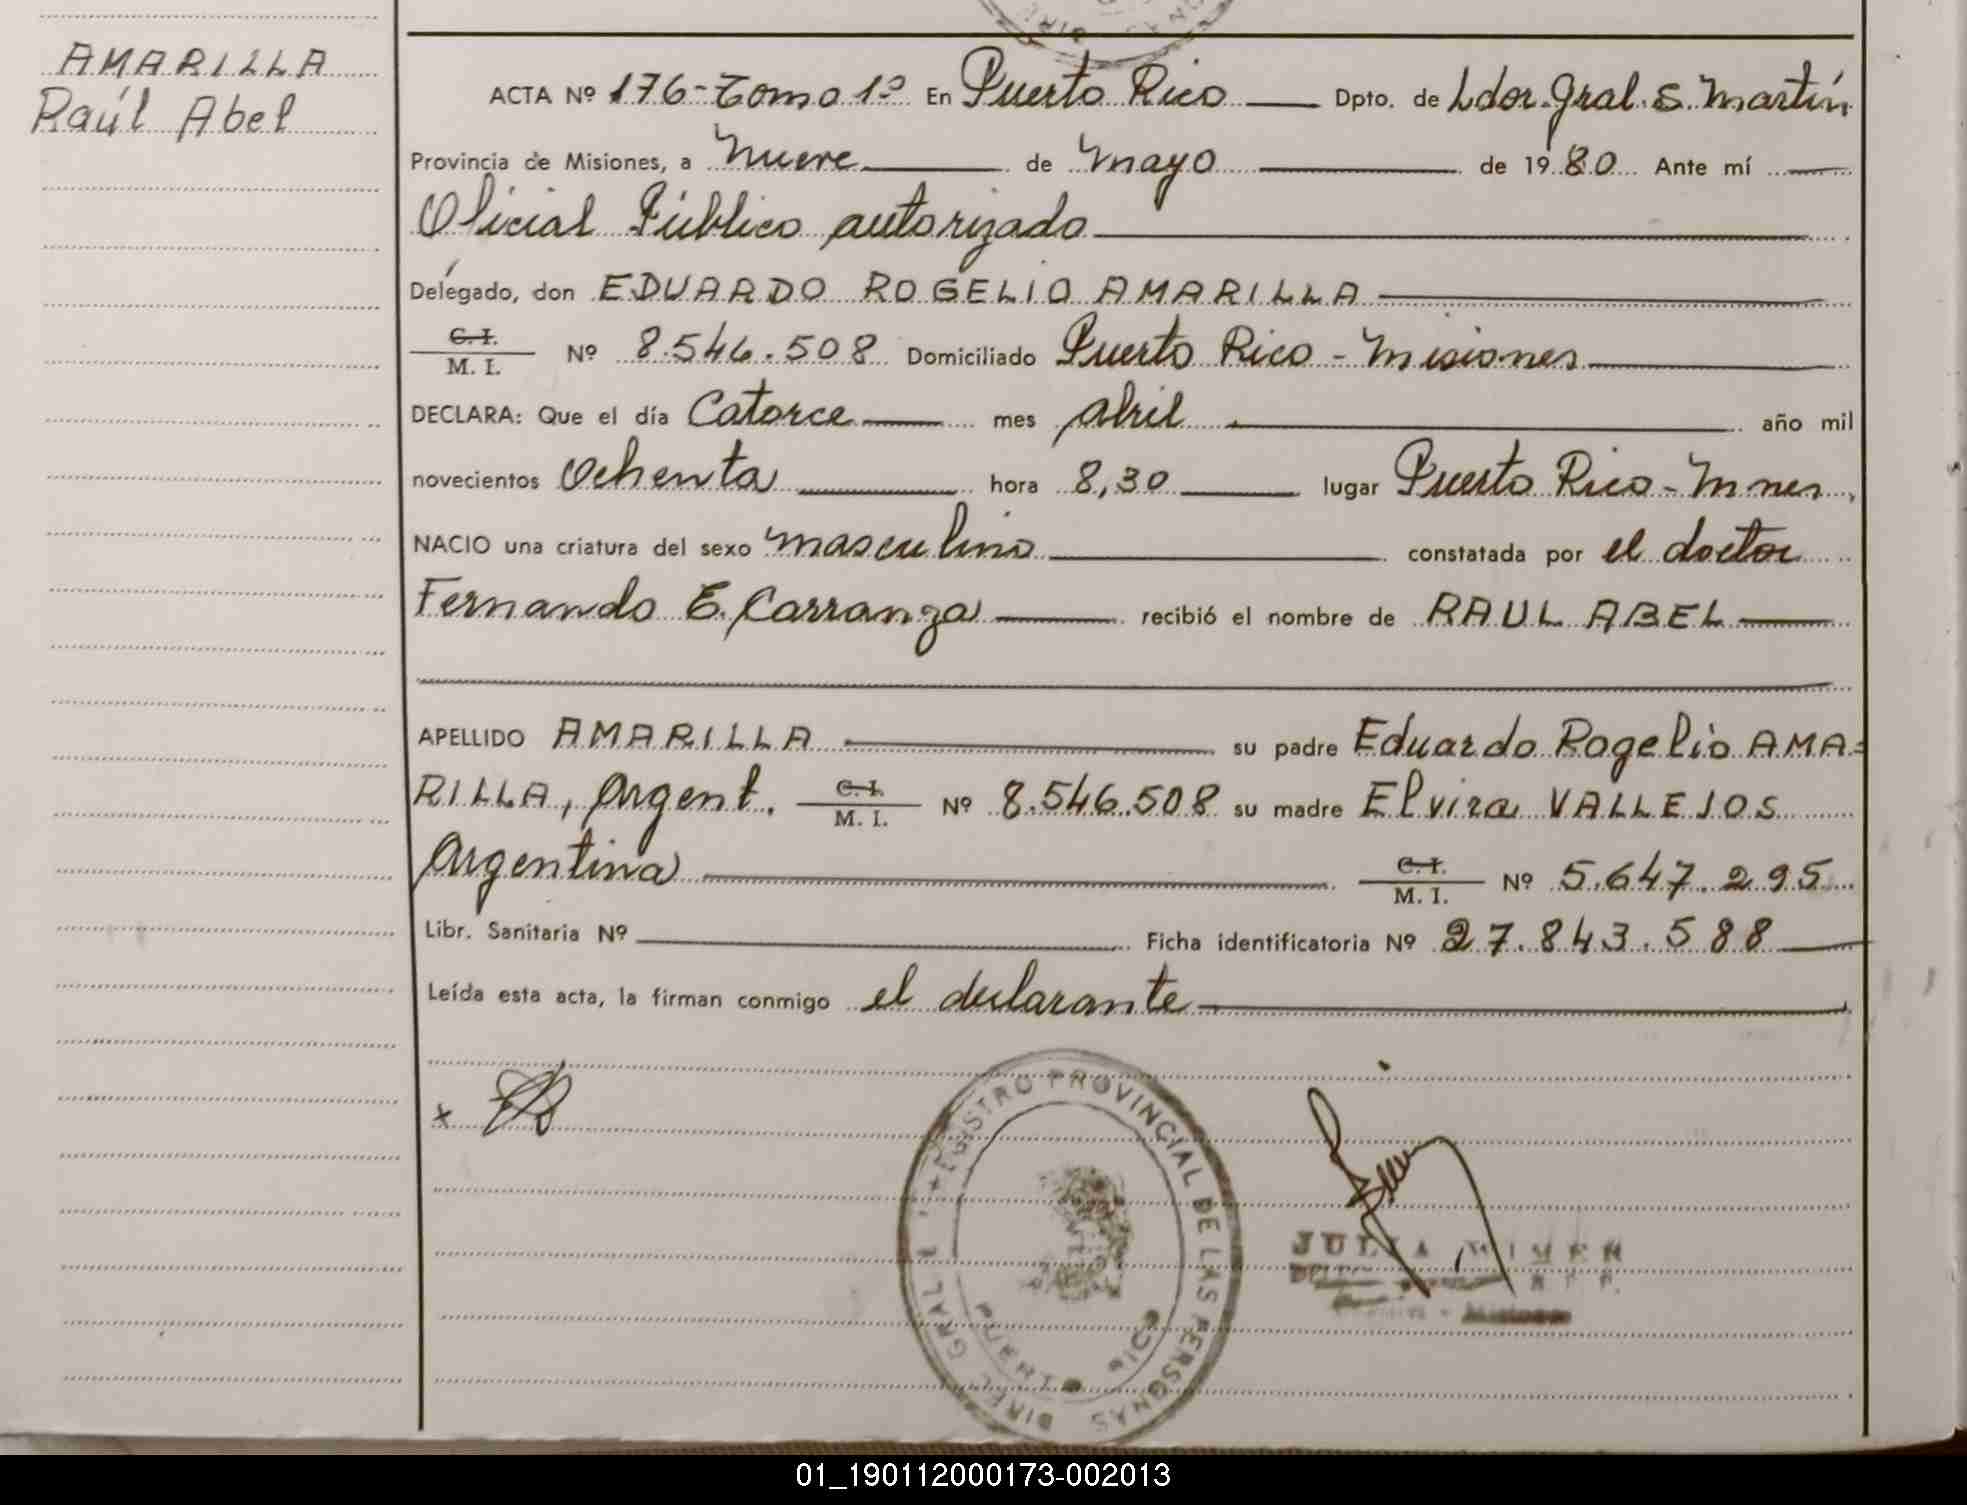 AMARILLA
Raúl Abel
ACTA Nº 176-Tomo 1º En Puerto Rico Dpto. de Ldor. Gral. S. Martín
Provincia de Misiones, a nueve de mayo de 1980 Ante mí
Oficial Público autorizado
Delegado, don EDUARDO ROGELIO AMARILLA
C. I.
M. I. Nº 8.546.508 Domiciliado Puerto Rico - Misiones
DECLARA: Que el día Catorce mes abril año mil
novecientos ochenta hora 8,30 lugar Puerto Rico - Mnes
NACIO una criatura del sexo masculino constatada por el doctor
Fernando E. Carranza recibió el nombre de RAUL ABEL
APELLIDO AMARILLA su padre Eduardo Rogelio AMA=
RILLA, Argent. C. I. M. I. Nº 8.546.508 su madre Elvira VALLEJOS
Argentina C. I. M. I. Nº 5.647.295
Libr. Sanitaria Nº Ficha identificatoria Nº 27.843.588
Leída esta acta, la firman conmigo el declarante
x
REGISTRO PROVINCIAL DE LAS PERSONAS
01_190112000173-002013